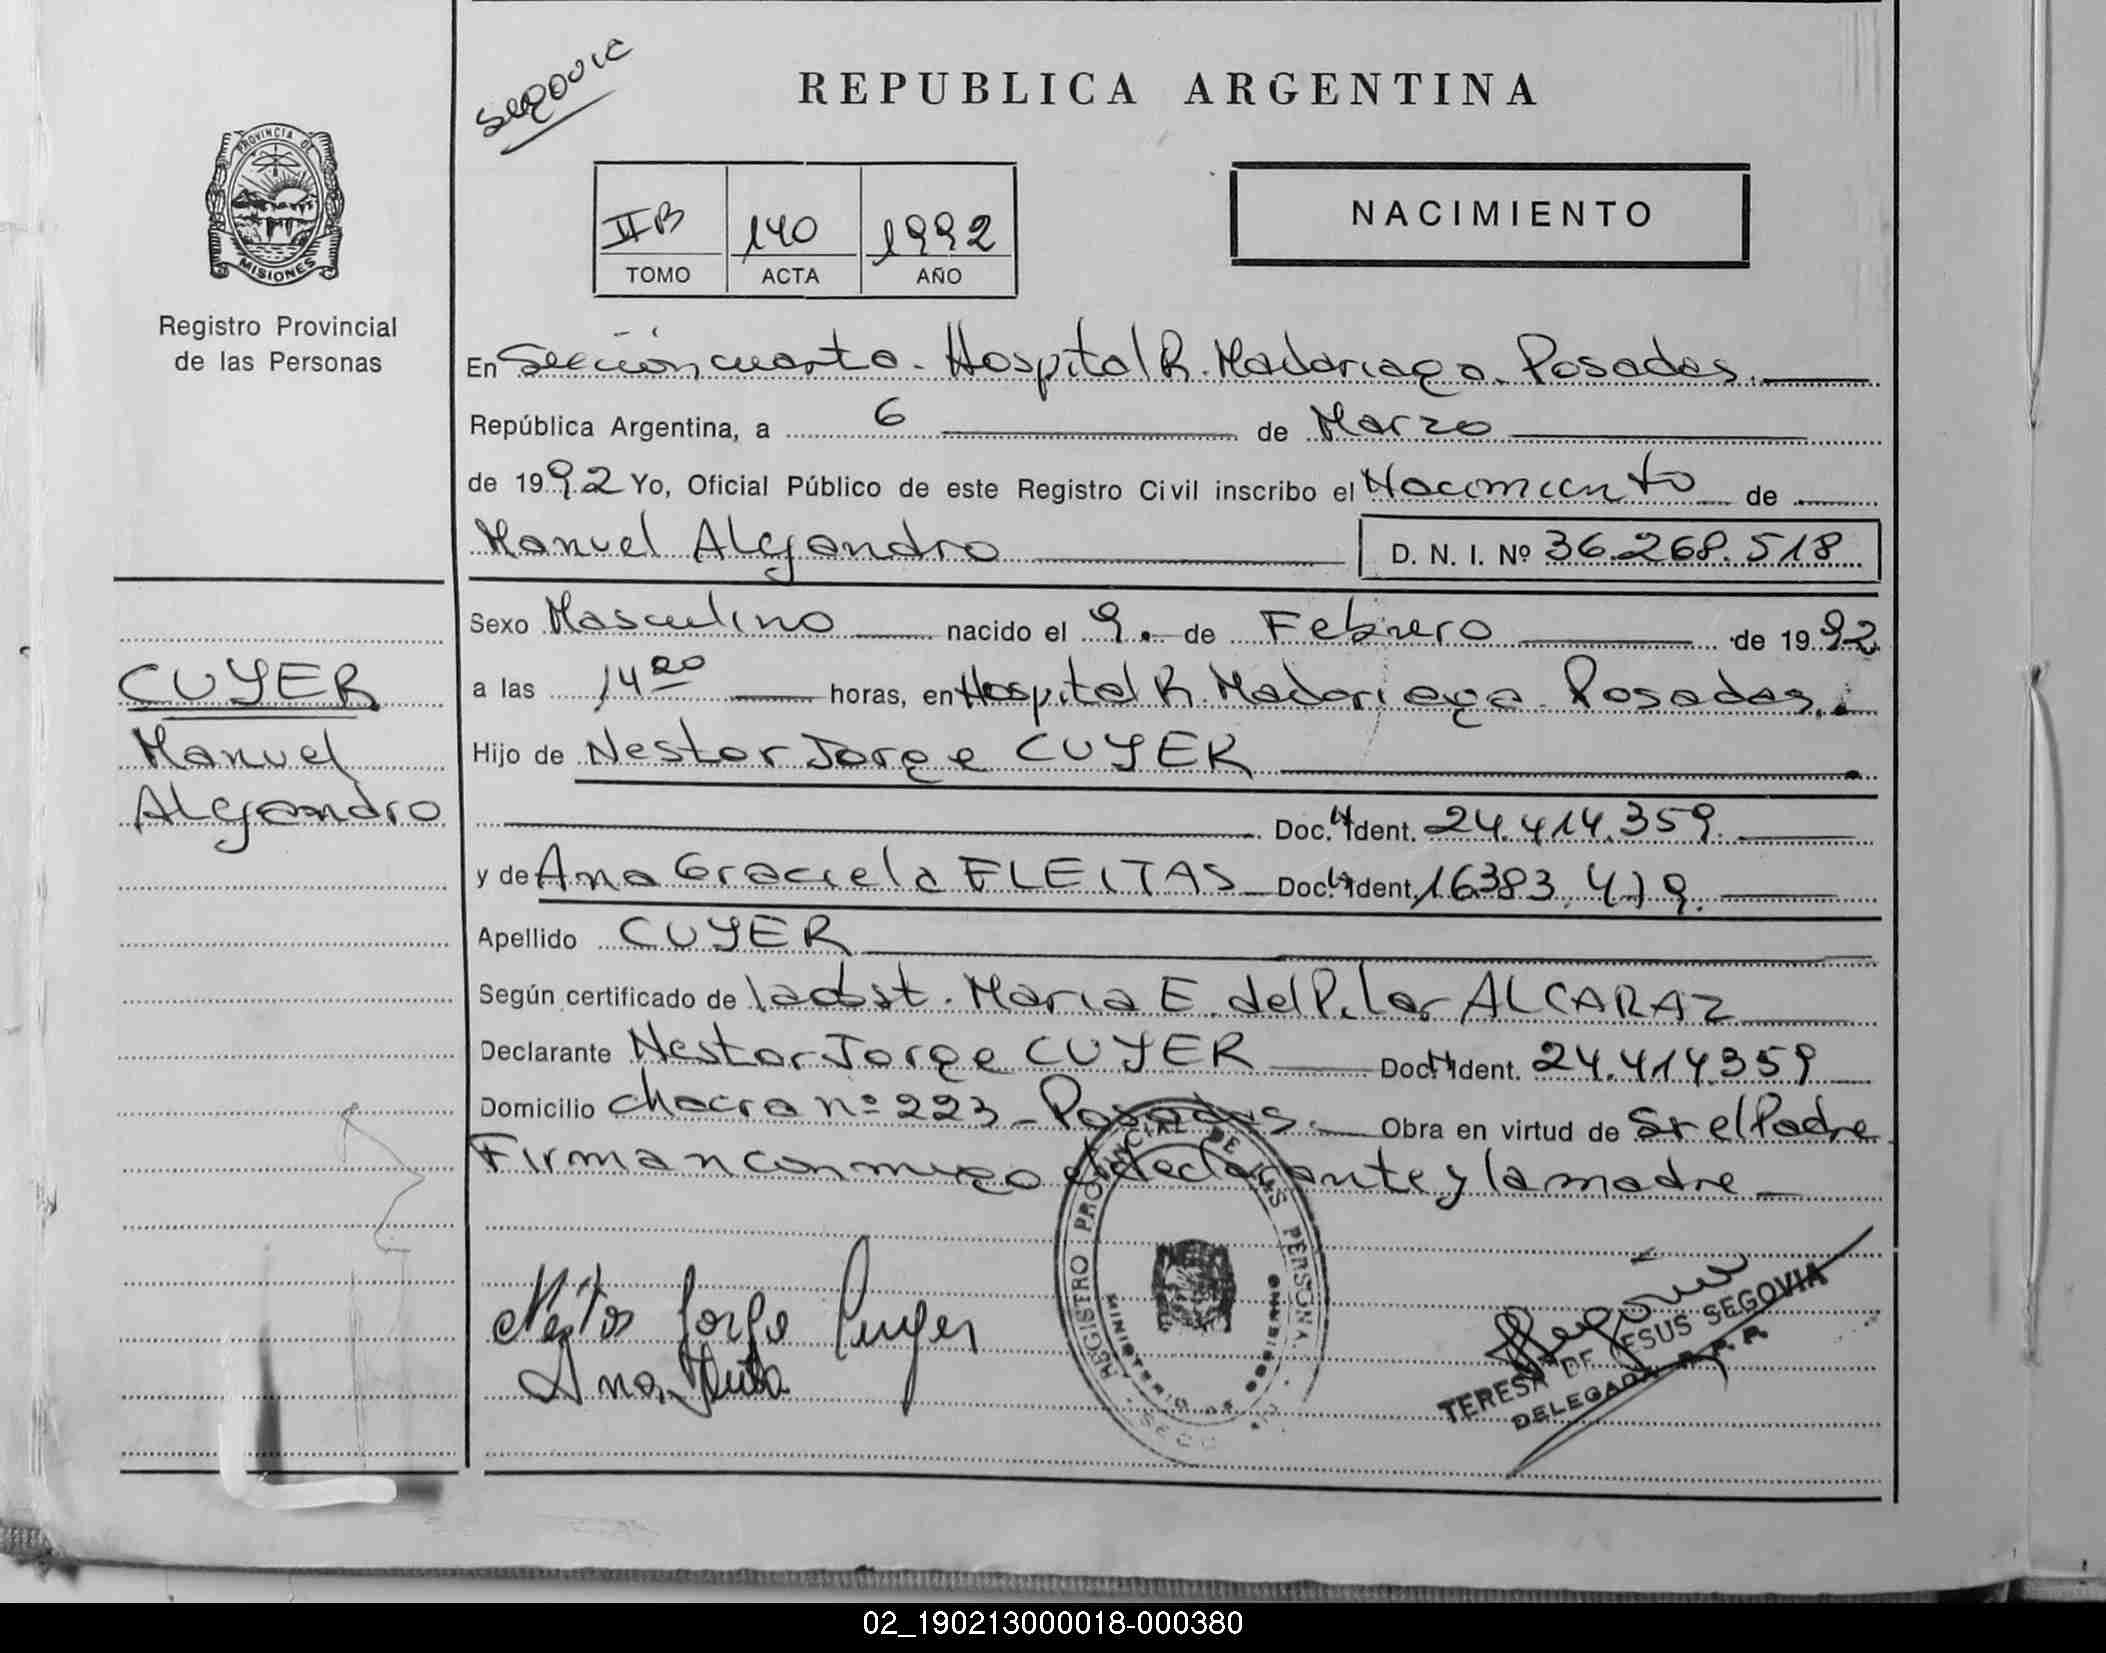 Segovia
REPUBLICA ARGENTINA
PROVINCIA DE
MISIONES
Registro Provincial
de las Personas
IIB 140 1992
TOMO ACTA AÑO
NACIMIENTO
En Sección cuarta. Hospital R. Madariaga. Posadas.
República Argentina, a 6 de Marzo
de 1992 Yo, Oficial Público de este Registro Civil inscribo el Nacimiento de
Manuel Alejandro D. N. I. Nº 36.268.518
Sexo Masculino nacido el 9 de Febrero de 1992
a las 14 20 horas, en Hospital R. Madariaga Posadas.
CUYER
Manuel
Alejandro
Hijo de Nestor Jorge CUYER
Doc. Ident. 24.414.359
y de Ana Graciela FLEITAS Doc. Ident. 16383.479.
Apellido CUYER
Según certificado de la obst. Maria E. del Pilar ALCARAZ
Declarante Nestor Jorge CUYER Doc. Ident. 24.414.359
Domicilio chacra nº 223 - Posadas. Obra en virtud de Sr el Padre
Firman conmigo el declarante y la madre
Nestor Jorge Cuyer
Ana
REGISTRO PROVINCIAL DE LAS PERSONAS
MINISTERIO DE GOBIERNO
Segovia
TERESA DE JESUS SEGOVIA
DELEGADA R. P. P.
02_190213000018-000380